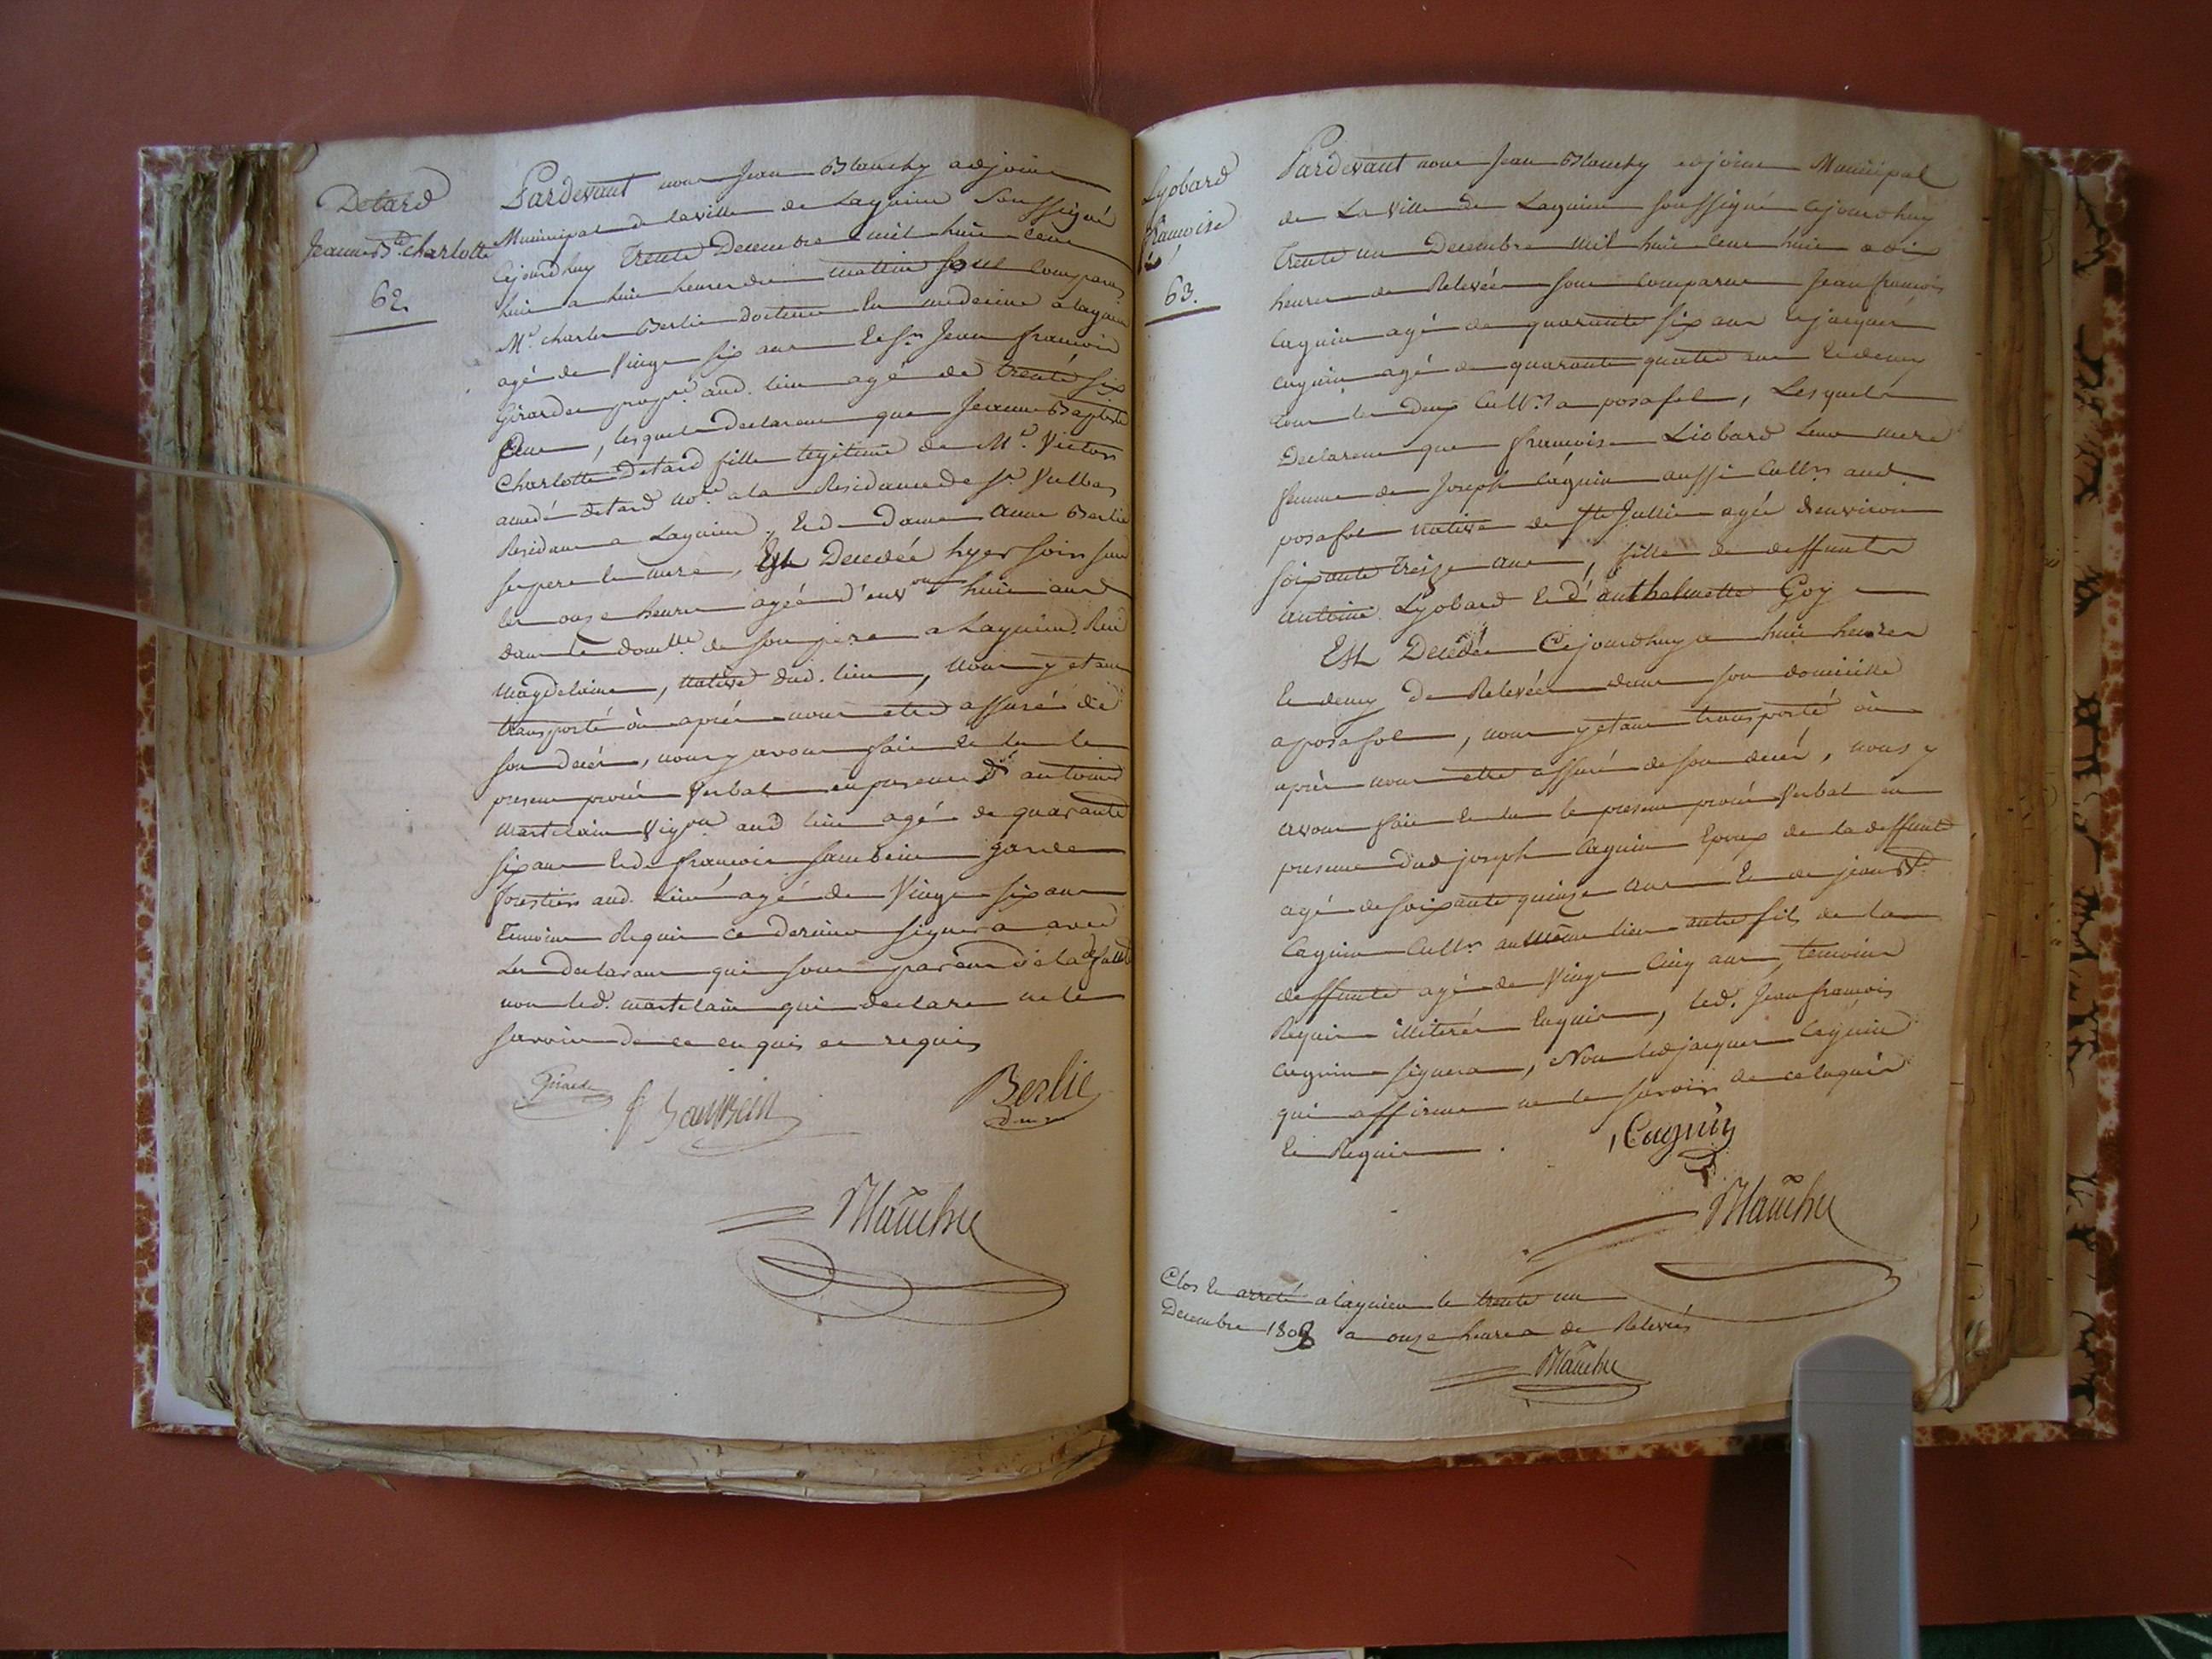 Detard
Jeanne Bte Charlotte
62.
Pardevant nous Jean Blanchy adjoint
Municipal de la ville de Lagnieu Soussigné
Cejourdhuy Trente Decembre mil huit cent
huit a huit heures du mattin sont comparus
Mr. charles Berlie Docteur en medecine a lagnieu
agé de Vingt six ans et sr. Jean francois
Girardet propre. aud. lieu agé de trente six
ans, lesquels declarent que Jeanne Baptiste
Charlotte Detard fille legitime de Mr. Victor
amedé detard nore. a la Residance de St Vulbas
Residant a Lagnieu, et de Dame anne Berlie
ses pere et mere, Est Decedée hyer soir sur
les onze heures agée d'envon huit ans
dans le domlle de son pere a Lagnieu Rue
magdelaine, native dud. lieu, nous y etant
transporté où après nous etre assuré de
son decés, nous y avons fait et lu le
present procés Verbal en presence d' antoine
martelain Vigon aud lieu agé de quarante
six ans et de francois sambein garde
forestier aud. lieu agé de Vingt six ans
Temoins Requis ce dernier signera avec
Les declarans qui sont parens de la dfunte
non led. martelain qui declare ne le
savoir de ce enquis et requis
Girardet
f Sambein
Berlie
d.m.
Blanchy
Lyobard
francoise
63.
Pardevant nous Jean Blanchy adjoint Municipal
de La Ville de Lagnieu soussigné cejourdhuy
trente un Decembre mil huit cent huit a dix
heures de Relevée sont comparus Jean francois
Cagnin agé de quarante six ans et jacques
cagnin agé de quarante quatre ans et demy
tous les deux Cultrs a posafol, Lesquels
Declarent que francoise Liobard leur mere
femme de Joseph Cagnin aussi Cultr aud.
posafol native de Ste Jullie agée denviron
soixante treize ans, fille de deffunts
antoine Lyobard et d'anthelmette Goy
Est Decedée Cejourdhuy a huit heures
et demy de Relevée dans son domicille
a posafol, nous y etant transporté où
après nous etre assuré de son decés, nous y
avons fait et lu le present procés Verbal en
presence dud joseph Cagnin Epoux de la deffunte
agé de soixante quinze ans et de jean Bte
Cagnin Cultr au même lieu autre fils de la
deffunte agé de Vingt Cinq ans, temoins
Requis illiterés Enquis, led. Jean francois
cagnin signera, Non led jacques Cagnin
qui affirme ne le savoir de ce Enquis
Et Requis.
Cagnin
Blanchy
Clos et arreté a lagnieu le trente un
Decembre 1808 a onze heures de Relevée
Blanchy